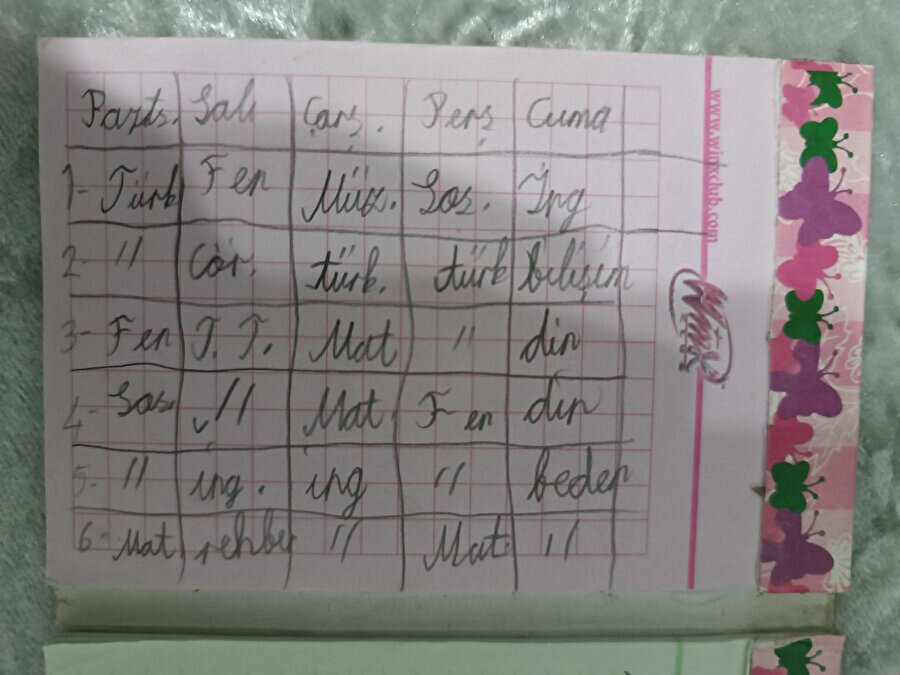 Pazts. Salı Çarş. Perş Cuma
1- Türk Fen Müz. Sos. İng
2- " Gör. türk. türk bilişim
3- Fen T.T. Mat " din
4- Sos " Mat Fen din
5- " ing. ing " beden
6- Mat rehber " Mat "
www.winxclub.com
Winx
CLUB